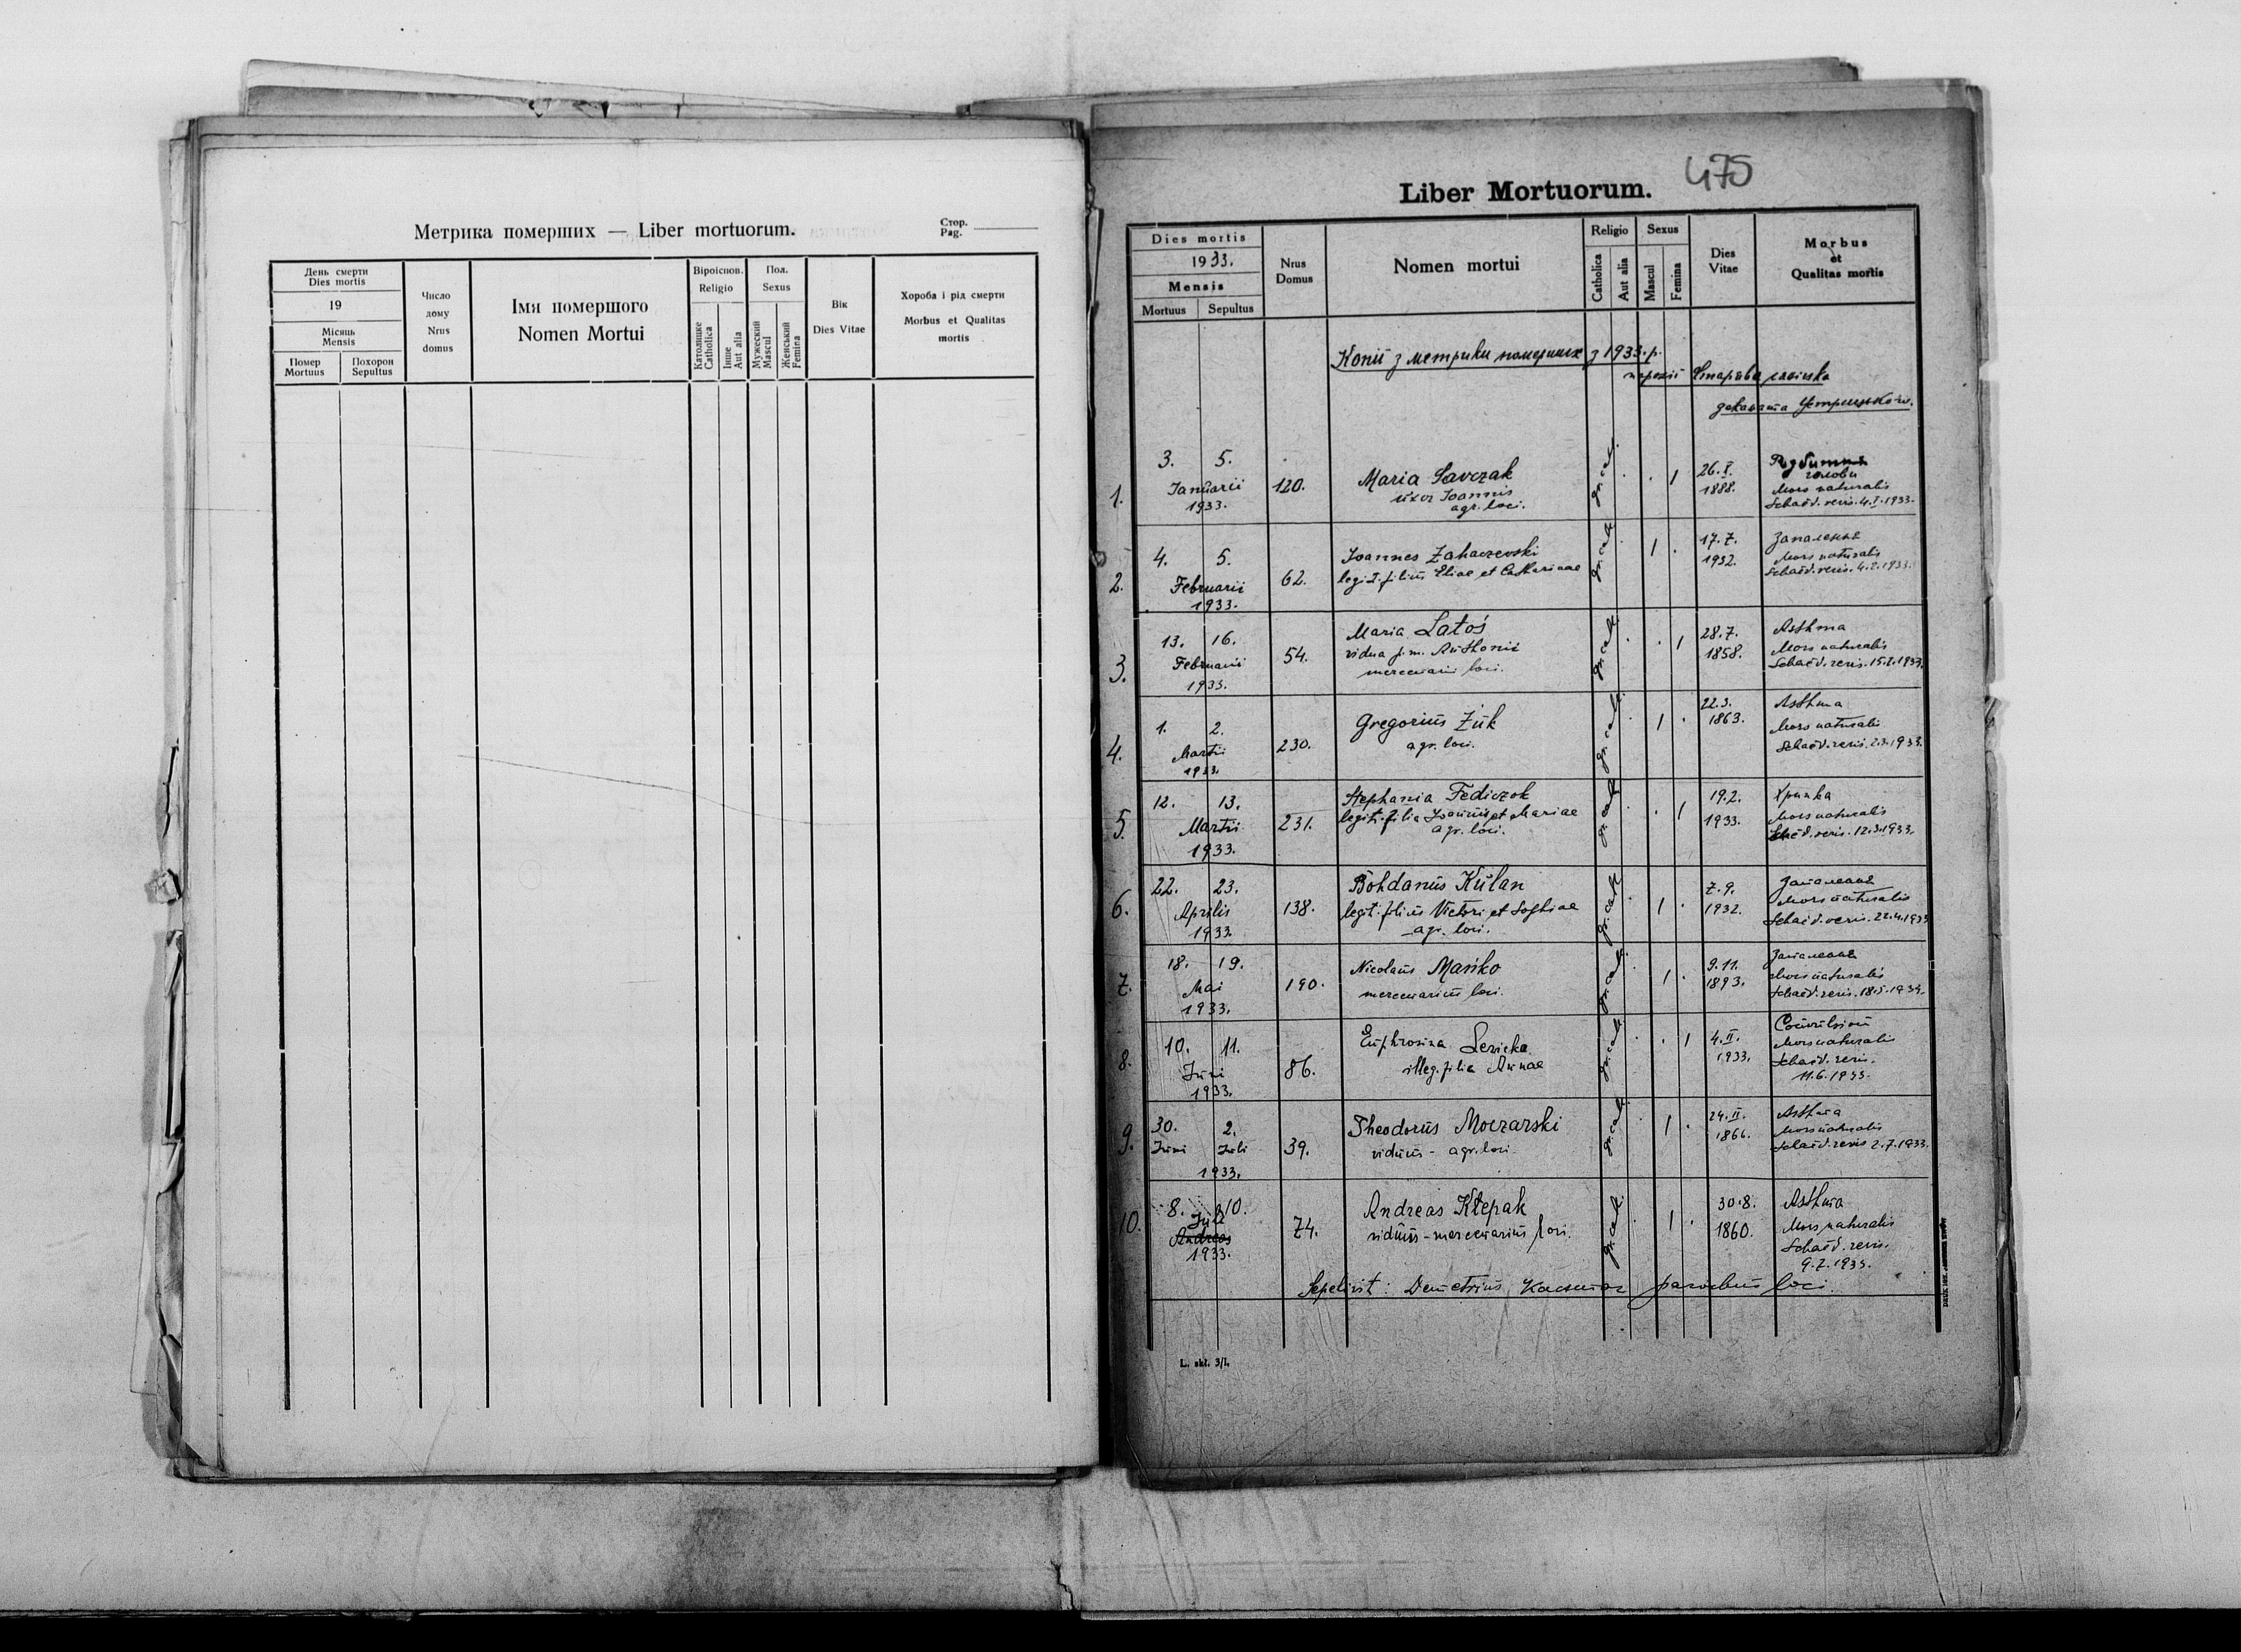 Метрика померших — Liber mortuorum.
Стор.
Pag.
День смерти
Dies mortis
19
Місяць
Mensis
Помер
Mortuus
Похорон
Sepultus
Число
дому
Nrus
domus
Імя помершого
Nomen Mortui
Віроіспов.
Religio
Католицке
Catholica
Інше
Aut alia
Пол.
Sexus
Мужеский
Mascul
Женський
Femina
Вік
Dies Vitae
Хороба і рід смерти
Morbus et Qualitas
mortis
475
Liber Mortuorum.
Dies mortis
1933.
Mensis
Mortuus
Sepultus
Nrus
Domus
Nomen mortui
Religio
Catholica
Aut alia
Sexus
Mascul
Femina
Dies
Vitae
Morbus
et
Qualitas mortis
Копії з метрики померших з 1933. р.
парохії
деканата
1.
3. 5.
Januarii
1933.
120.
Maria Savczak
uxor Joannis
agr. loci.
gr. cat.
1
26. I.
1888.
голови
Mors naturalis
Schaed. revis. 4.I.1933.
2.
4. 5.
Februarii
1933.
62.
Joannes Zahaczevski
legit. filius Eliae et Catharinae
gr. cath
1
17.7.
1932.
Запалення
Mors naturalis
Schaed. revis. 4.2.1933.
3.
13. 16.
Februarii
1933.
54.
Maria Latoś
vidua p.m. Anthonii
mercenarii loci.
gr. cath
1
28.7.
1858.
Asthma
Mors naturalis
Schaed. revis. 15.2.1933.
4.
1. 2.
Martii
1933.
230.
Gregorius Żuk
agr. loci.
gr. cath.
1
22.3.
1863.
Asthma
Mors naturalis
Schaed. revis. 2.3.1933.
5.
12. 13.
Martii
1933.
231.
Stephania Fediczok
legit. filia Joannis et Mariae
agr. loci.
gr. cath
1
19.2.
1933.
Хрипка
Mors naturalis
Schaed. revis. 12.3.1933.
6.
22. 23.
Aprilis
1933.
138.
Bohdanus Kulan
legit. filius Victori et Sophiae
agr. loci.
gr. cath
1
7.9.
1932.
Запалення
Mors naturalis
Schaed. revis. 22.4.1933
7.
18. 19.
Mai
1933.
190.
Nicolaus Mańko
mercenarius loci.
gr. cath.
1
9.11.
1893.
Запалення
Mors naturalis
Schaed. revis. 18.5.1933.
8.
10. 11.
Juni
1933.
86.
Euphrosina
illeg. filia Annae
gr. cath
1
4.II.
1933.
Mors naturalis
Schaed. revis.
11.6.1933.
9.
30. 2.
Juni Juli
1933.
39.
Theodorus Moczarski
viduus - agr. loci.
gr. cath.
1
24.II.
1866.
Asthma
Mors naturalis
Schaed. revis 2.7.1933.
10.
8. 10.
Juli
Andreas
1933.
74.
Andreas Kłepak
viduus - mercenarius loci.
gr. cath.
1
30.8.
1860.
Asthma
Mors naturalis
Schaed. revis.
9.7.1933.
Sepelivit: Demetrius parochus loci.
L. skł. 3/I.